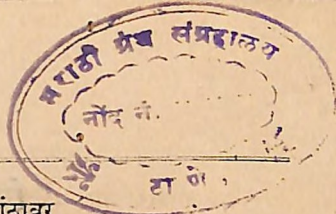 मराठी ग्रंथ संग्रहालय
नोंद नं. ..........
ठाणे.